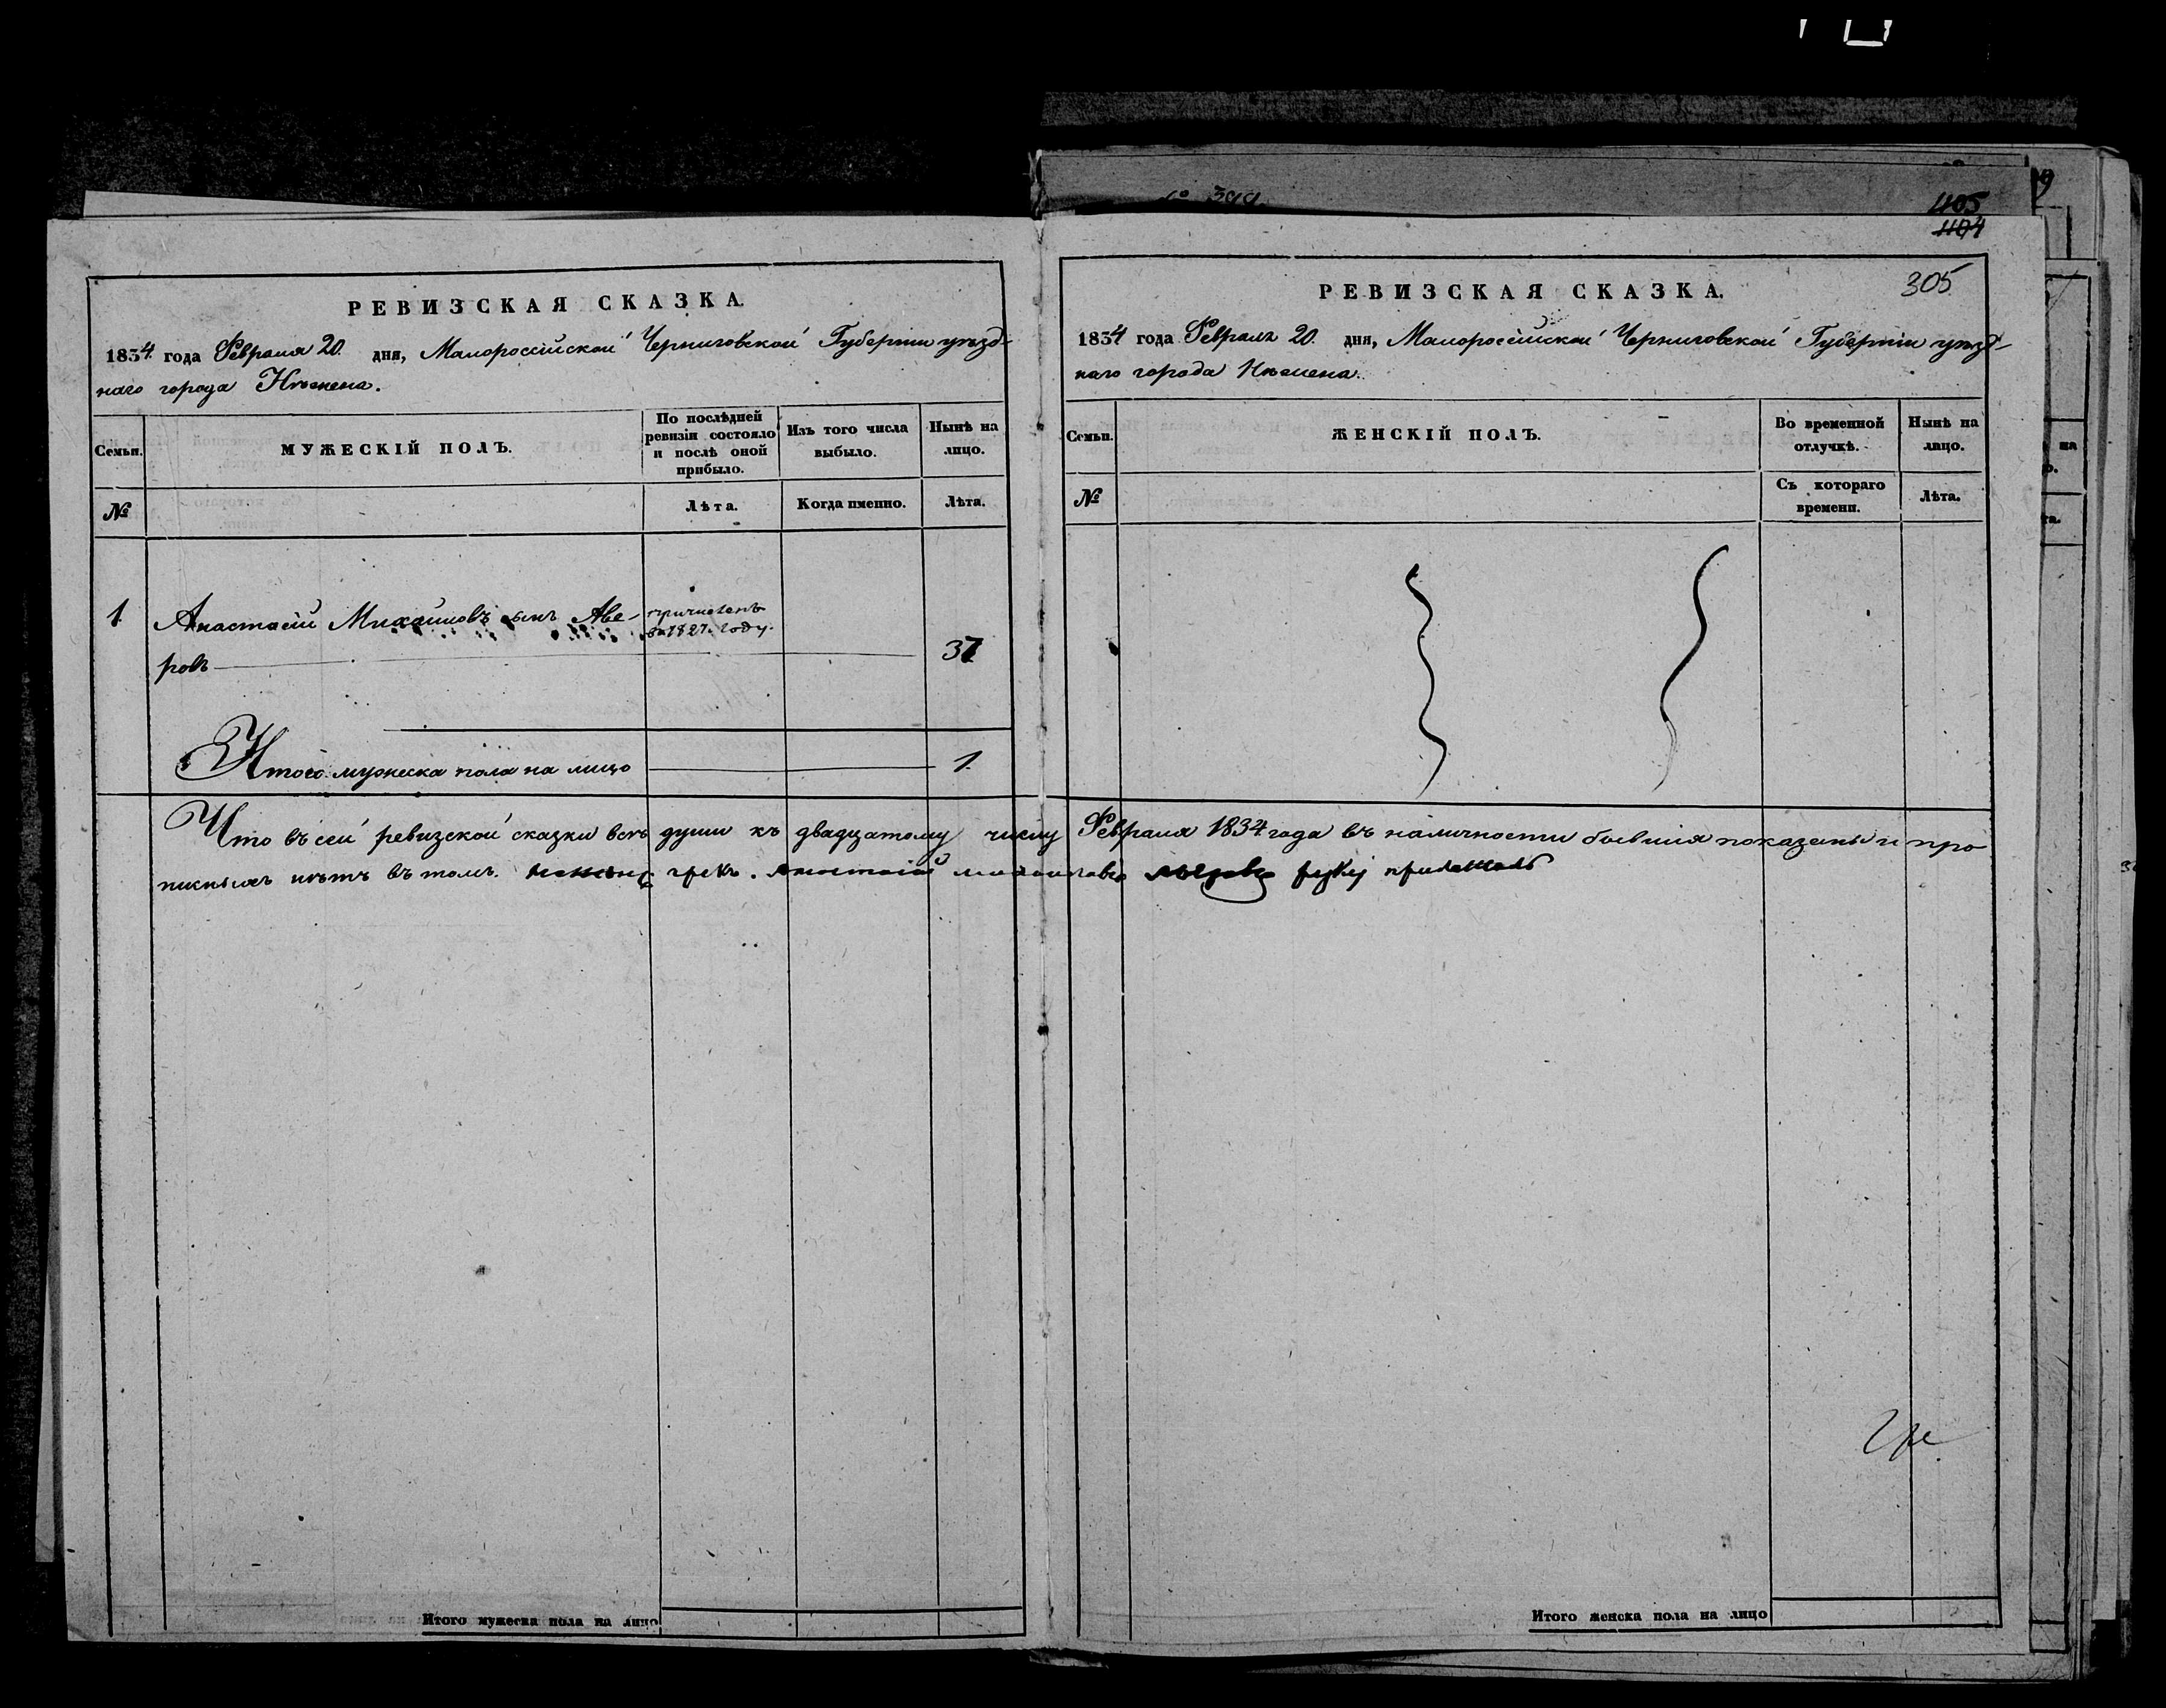 1105
1104
305
РЕВИЗСКАЯ СКАЗКА.
1834. года Февраля 20. дня, Малороссійской Черниговской Губерніи уѣзд-
наго города Нѣжена.
Семьи.
МУЖЕСКІЙ ПОЛЪ.
По послѣдней ревизіи состояло и послѣ оной прибыло.
Изъ того числа выбыло.
Нынѣ на лицо.
№
Лѣта.
Когда именно.
Лѣта.
1 Анастасій Михайловъ сынъ Аве- причисленъ
въ 1827. году.
ровъ 37
Итого мужеска пола на лицо 1.
РЕВИЗСКАЯ СКАЗКА.
1834 года Февраля 20. дня, Малороссійской Черниговской Губерніи уѣзд-
наго города Нѣжена.
Семьи.
ЖЕНСКІЙ ПОЛЪ.
Во временной отлучкѣ.
Нынѣ на лицо.
№
Съ котораго времени.
Лѣта.
Что въ сей ревизской сказки всѣ души къ двадцатому числу Февраля 1834 года въ наличности бывшія показаны и про
писныхъ нѣтъ въ томъ. грекъ. Анастасій Михаиловъ руку приложилъ
Итого мужеска пола на лицо
Итого женска пола на лицо